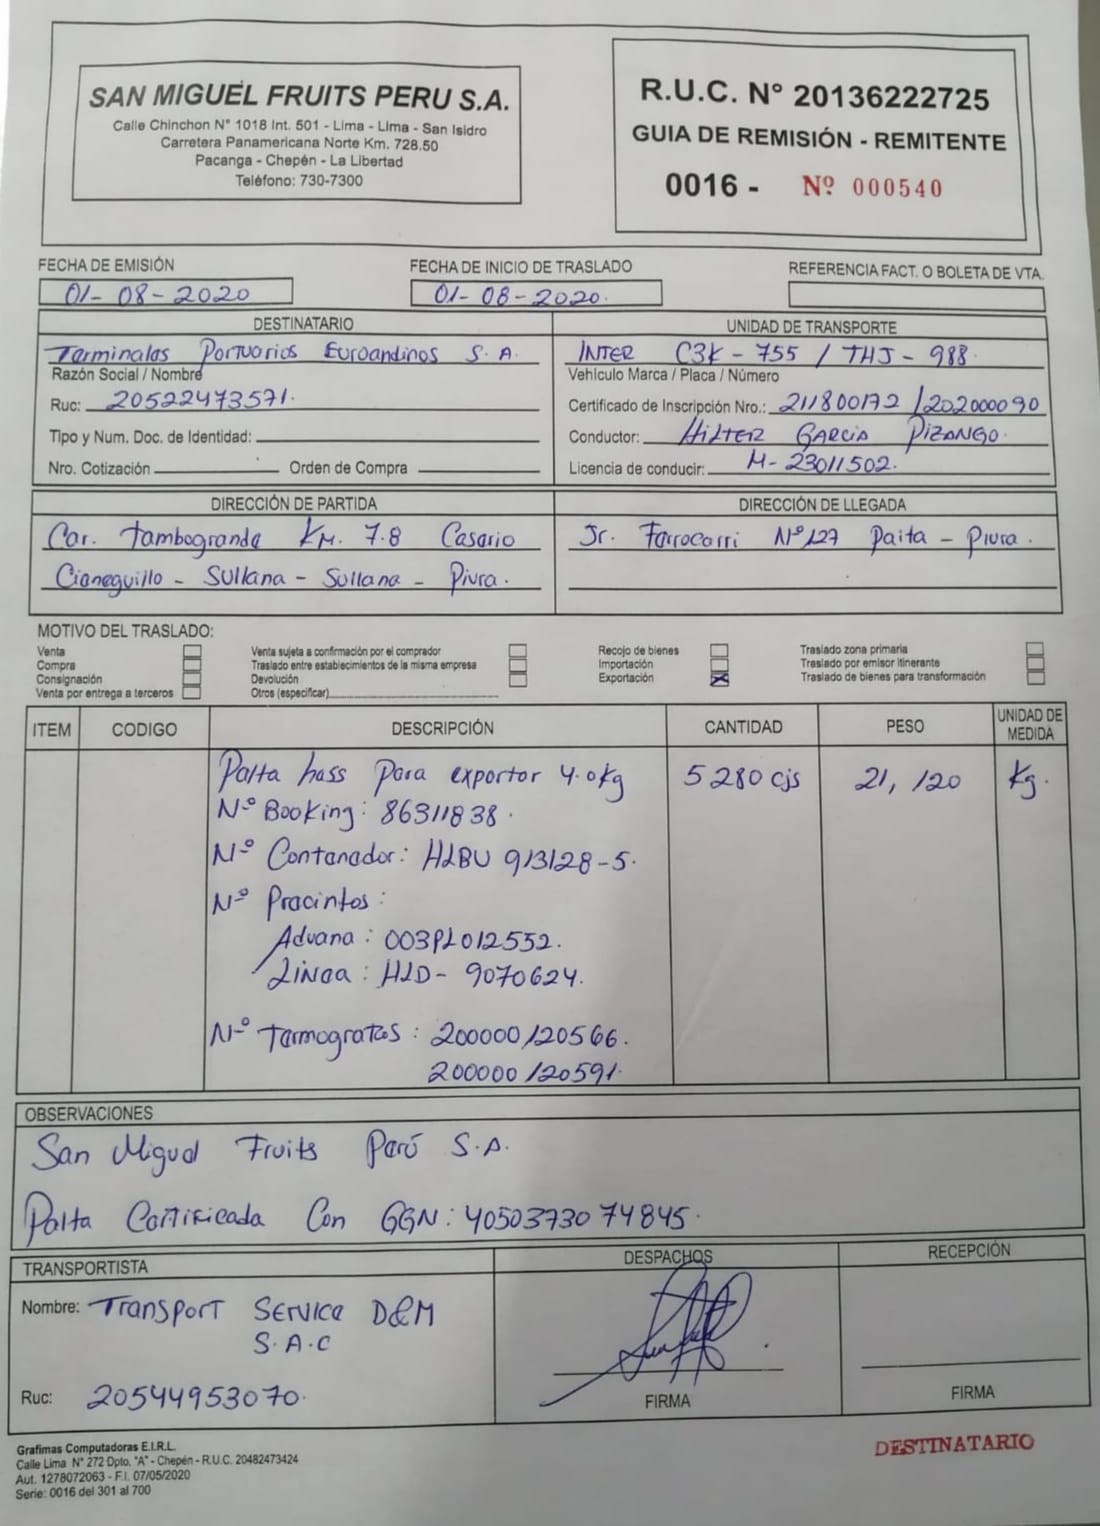 SAN MIGUEL FRUITS PERU S.A.
Calle Chinchon N° 1018 Int. 501 - Lima - Lima - San Isidro
Carretera Panamericana Norte Km. 728.50
Pacanga - Chepén - La Libertad
Teléfono: 730-7300
R.U.C. N° 20136222725
GUIA DE REMISIÓN - REMITENTE
0016 - Nº 000540
FECHA DE EMISIÓN
01-08-2020
FECHA DE INICIO DE TRASLADO
01-08-2020.
REFERENCIA FACT. O BOLETA DE VTA.
DESTINATARIO
Terminales Portuarios Euroandinos S.A.
Razón Social / Nombre
Ruc: 20522473571.
Tipo y Num. Doc. de Identidad:
Nro. Cotización Orden de Compra
UNIDAD DE TRANSPORTE
INTER C3K-755 / THJ-988.
Vehículo Marca / Placa / Número
Certificado de Inscripción Nro.: 211800172 / 202000090
Conductor: Hilter Garcia Pizango.
Licencia de conducir: M-23011502.
DIRECCIÓN DE PARTIDA
Car. Tambogrande Km. 7.8 Caserio
Cieneguillo - Sullana - Sullana - Piura.
DIRECCIÓN DE LLEGADA
Jr. Ferrocarri Nº127 Paita - Piura.
MOTIVO DEL TRASLADO:
Venta
Compra
Consignación
Venta por entrega a terceros
Venta sujeta a confirmación por el comprador
Traslado entre establecimientos de la misma empresa
Devolución
Otros (especificar)
Recojo de bienes
Importación
Exportación X
Traslado zona primaria
Traslado por emisor itinerante
Traslado de bienes para transformación
ITEM CODIGO DESCRIPCIÓN CANTIDAD PESO UNIDAD DE MEDIDA
Palta hass Para exportar 4.0kg 5280 cjs 21,120 Kg.
Nº Booking: 86311838.
Nº Contenedor: HLBU 913128-5.
Nº Precintos:
Aduana: 003PL012552.
Linea: HLD-9070624.
Nº Termografos: 200000120566.
200000120591.
OBSERVACIONES
San Miguel Fruits Perú S.A.
Palta Certificada Con GGN: 4050373074845.
TRANSPORTISTA
Nombre: Transport Service D&M
S.A.C
Ruc: 20544953070.
DESPACHOS
FIRMA
RECEPCIÓN
FIRMA
Grafimas Computadoras E.I.R.L.
Calle Lima N° 272 Dpto. "A" - Chepén - R.U.C. 20482473424
Aut. 1278072063 - F.I. 07/05/2020
Serie: 0016 del 301 al 700
DESTINATARIO